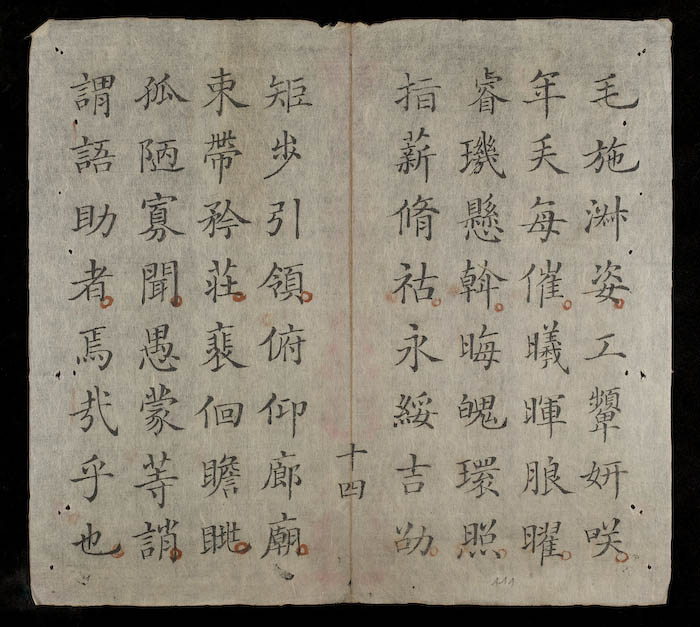 毛施淑姿工顰妍咲
年矢每催曦暉朖曜
睿璣懸斡晦魄環照
指薪脩祜永綏吉劭
十四
矩步引領俯仰廊廟
束帶矜荘裵佪瞻眺
孤陋寡聞愚蒙等誚
謂語助者焉哉乎也